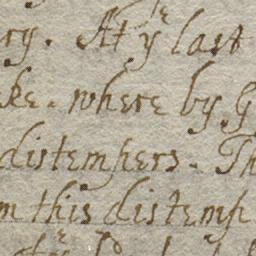 ry. At yᵉ last
ke. where by G
distempers. Th
m this distemp